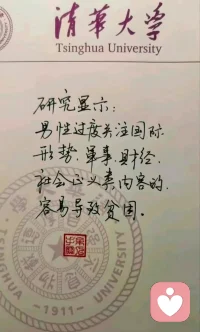 清華大学
Tsinghua University
研究显示：
男性过度关注国际
形势、军事、财经、
社会正义类内容的，
容易导致贫困。
TSINGHUA
UNIVERSITY
-1911-